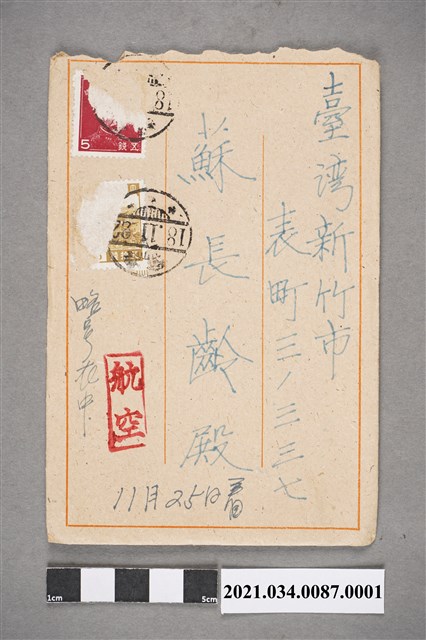 臺湾新竹市
表町三ノ三三七
蘇長齡殿
航空
11月25日着
5 錢五
18.11.22
1cm
5cm
2021.034.0087.0001